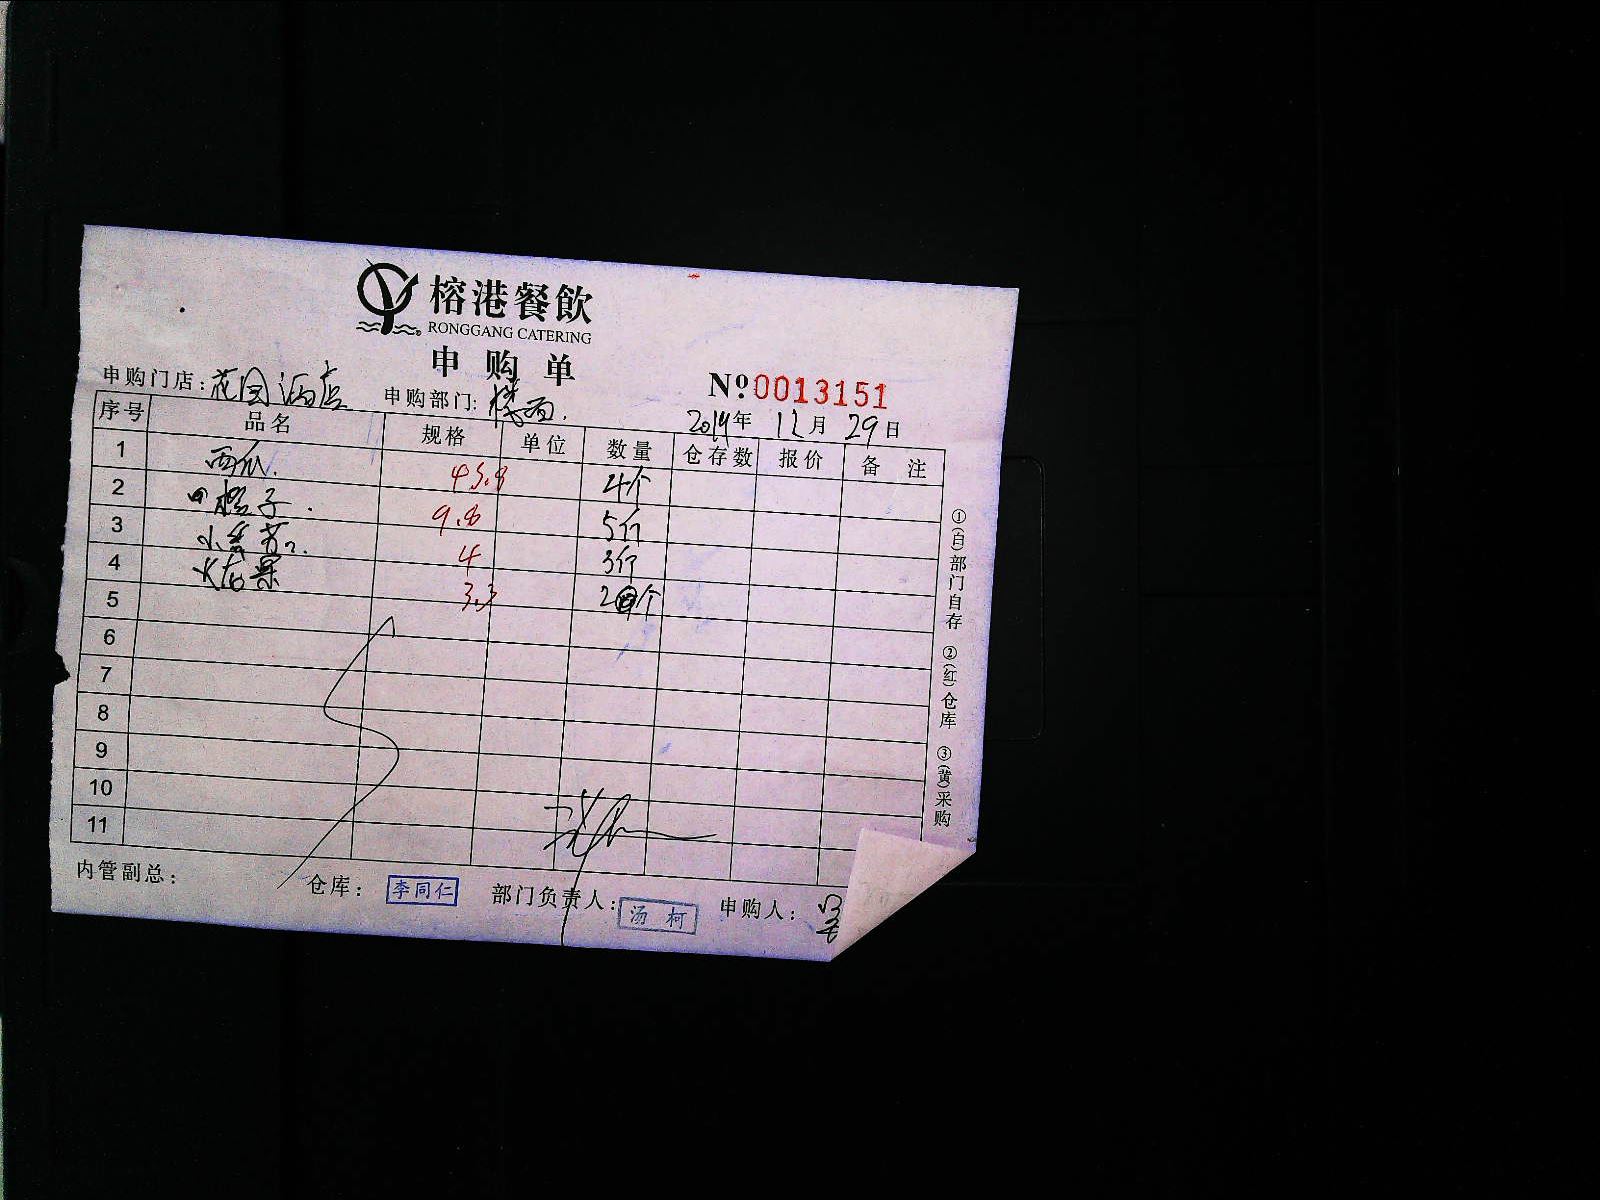 榕港餐飲
RONGGANG CATERING
申购单
申购门店: 花园酒店 申购部门: 楼面. №0013151
2014年 12月 29日
序号 品名 规格 单位 数量 仓存数 报价 备注
1 西瓜. 43.8 4个
2 橙子. 9.8 5斤
3 小 4 3斤
4 火龙果 3.3 2个
5
6
7
8
9
10
11
①(白)部门自存 ②(红)仓库 ③(黄)采购
内管副总: 仓库: 李同仁 部门负责人: 汤柯 申购人: